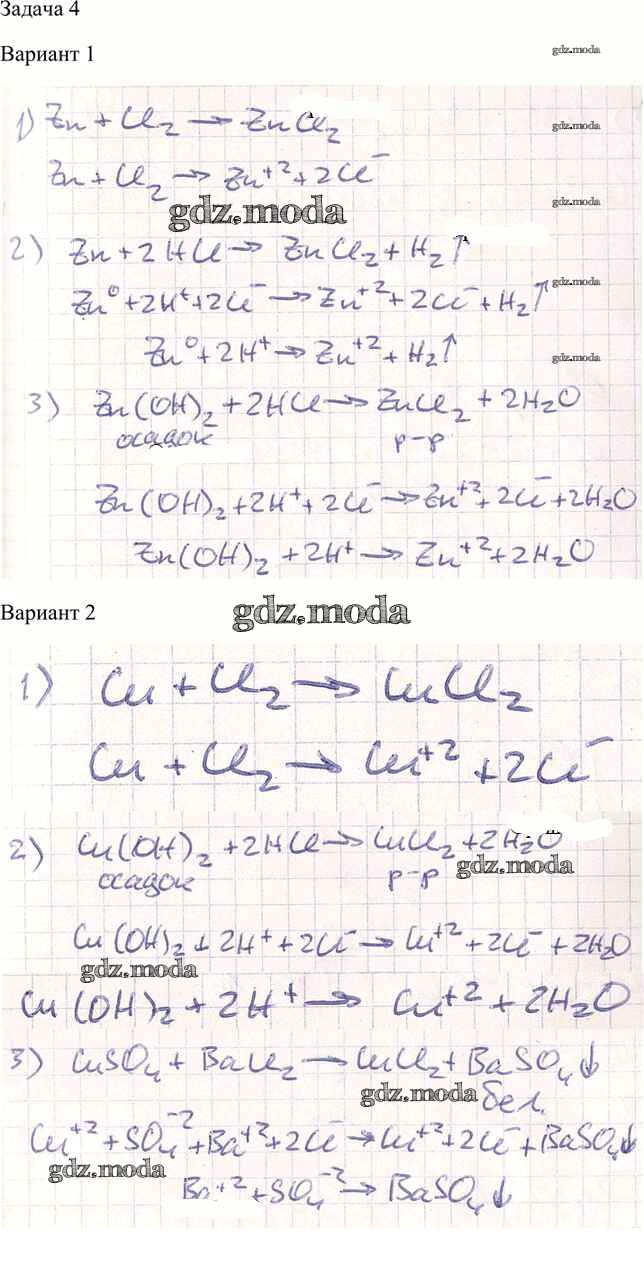 Задача 4
Вариант 1
gdz.moda
1) Zn + Cl₂ → ZnCl₂
gdz.moda
Zn + Cl₂ → Zn⁺² + 2Cl⁻
gdz.moda
gdz.moda
2) Zn + 2HCl → ZnCl₂ + H₂↑
Zn⁰ + 2H⁺ + 2Cl⁻ → Zn⁺² + 2Cl⁻ + H₂↑
gdz.moda
Zn⁰ + 2H⁺ → Zn⁺² + H₂↑
gdz.moda
3) Zn(OH)₂ + 2HCl → ZnCl₂ + 2H₂O
осадок р-р
Zn(OH)₂ + 2H⁺ + 2Cl⁻ → Zn⁺² + 2Cl⁻ + 2H₂O
Zn(OH)₂ + 2H⁺ → Zn⁺² + 2H₂O
Вариант 2
gdz.moda
1) Cu + Cl₂ → CuCl₂
Cu + Cl₂ → Cu⁺² + 2Cl⁻
2) Cu(OH)₂ + 2HCl → CuCl₂ + 2H₂O
осадок р-р
gdz.moda
Cu(OH)₂ + 2H⁺ + 2Cl⁻ → Cu⁺² + 2Cl⁻ + 2H₂O
gdz.moda
Cu(OH)₂ + 2H⁺ → Cu⁺² + 2H₂O
3) CuSO₄ + BaCl₂ → CuCl₂ + BaSO₄↓
gdz.moda
бел.
Cu⁺² + SO₄⁻² + Ba⁺² + 2Cl⁻ → Cu⁺² + 2Cl⁻ + BaSO₄↓
gdz.moda
Ba⁺² + SO₄⁻² → BaSO₄↓